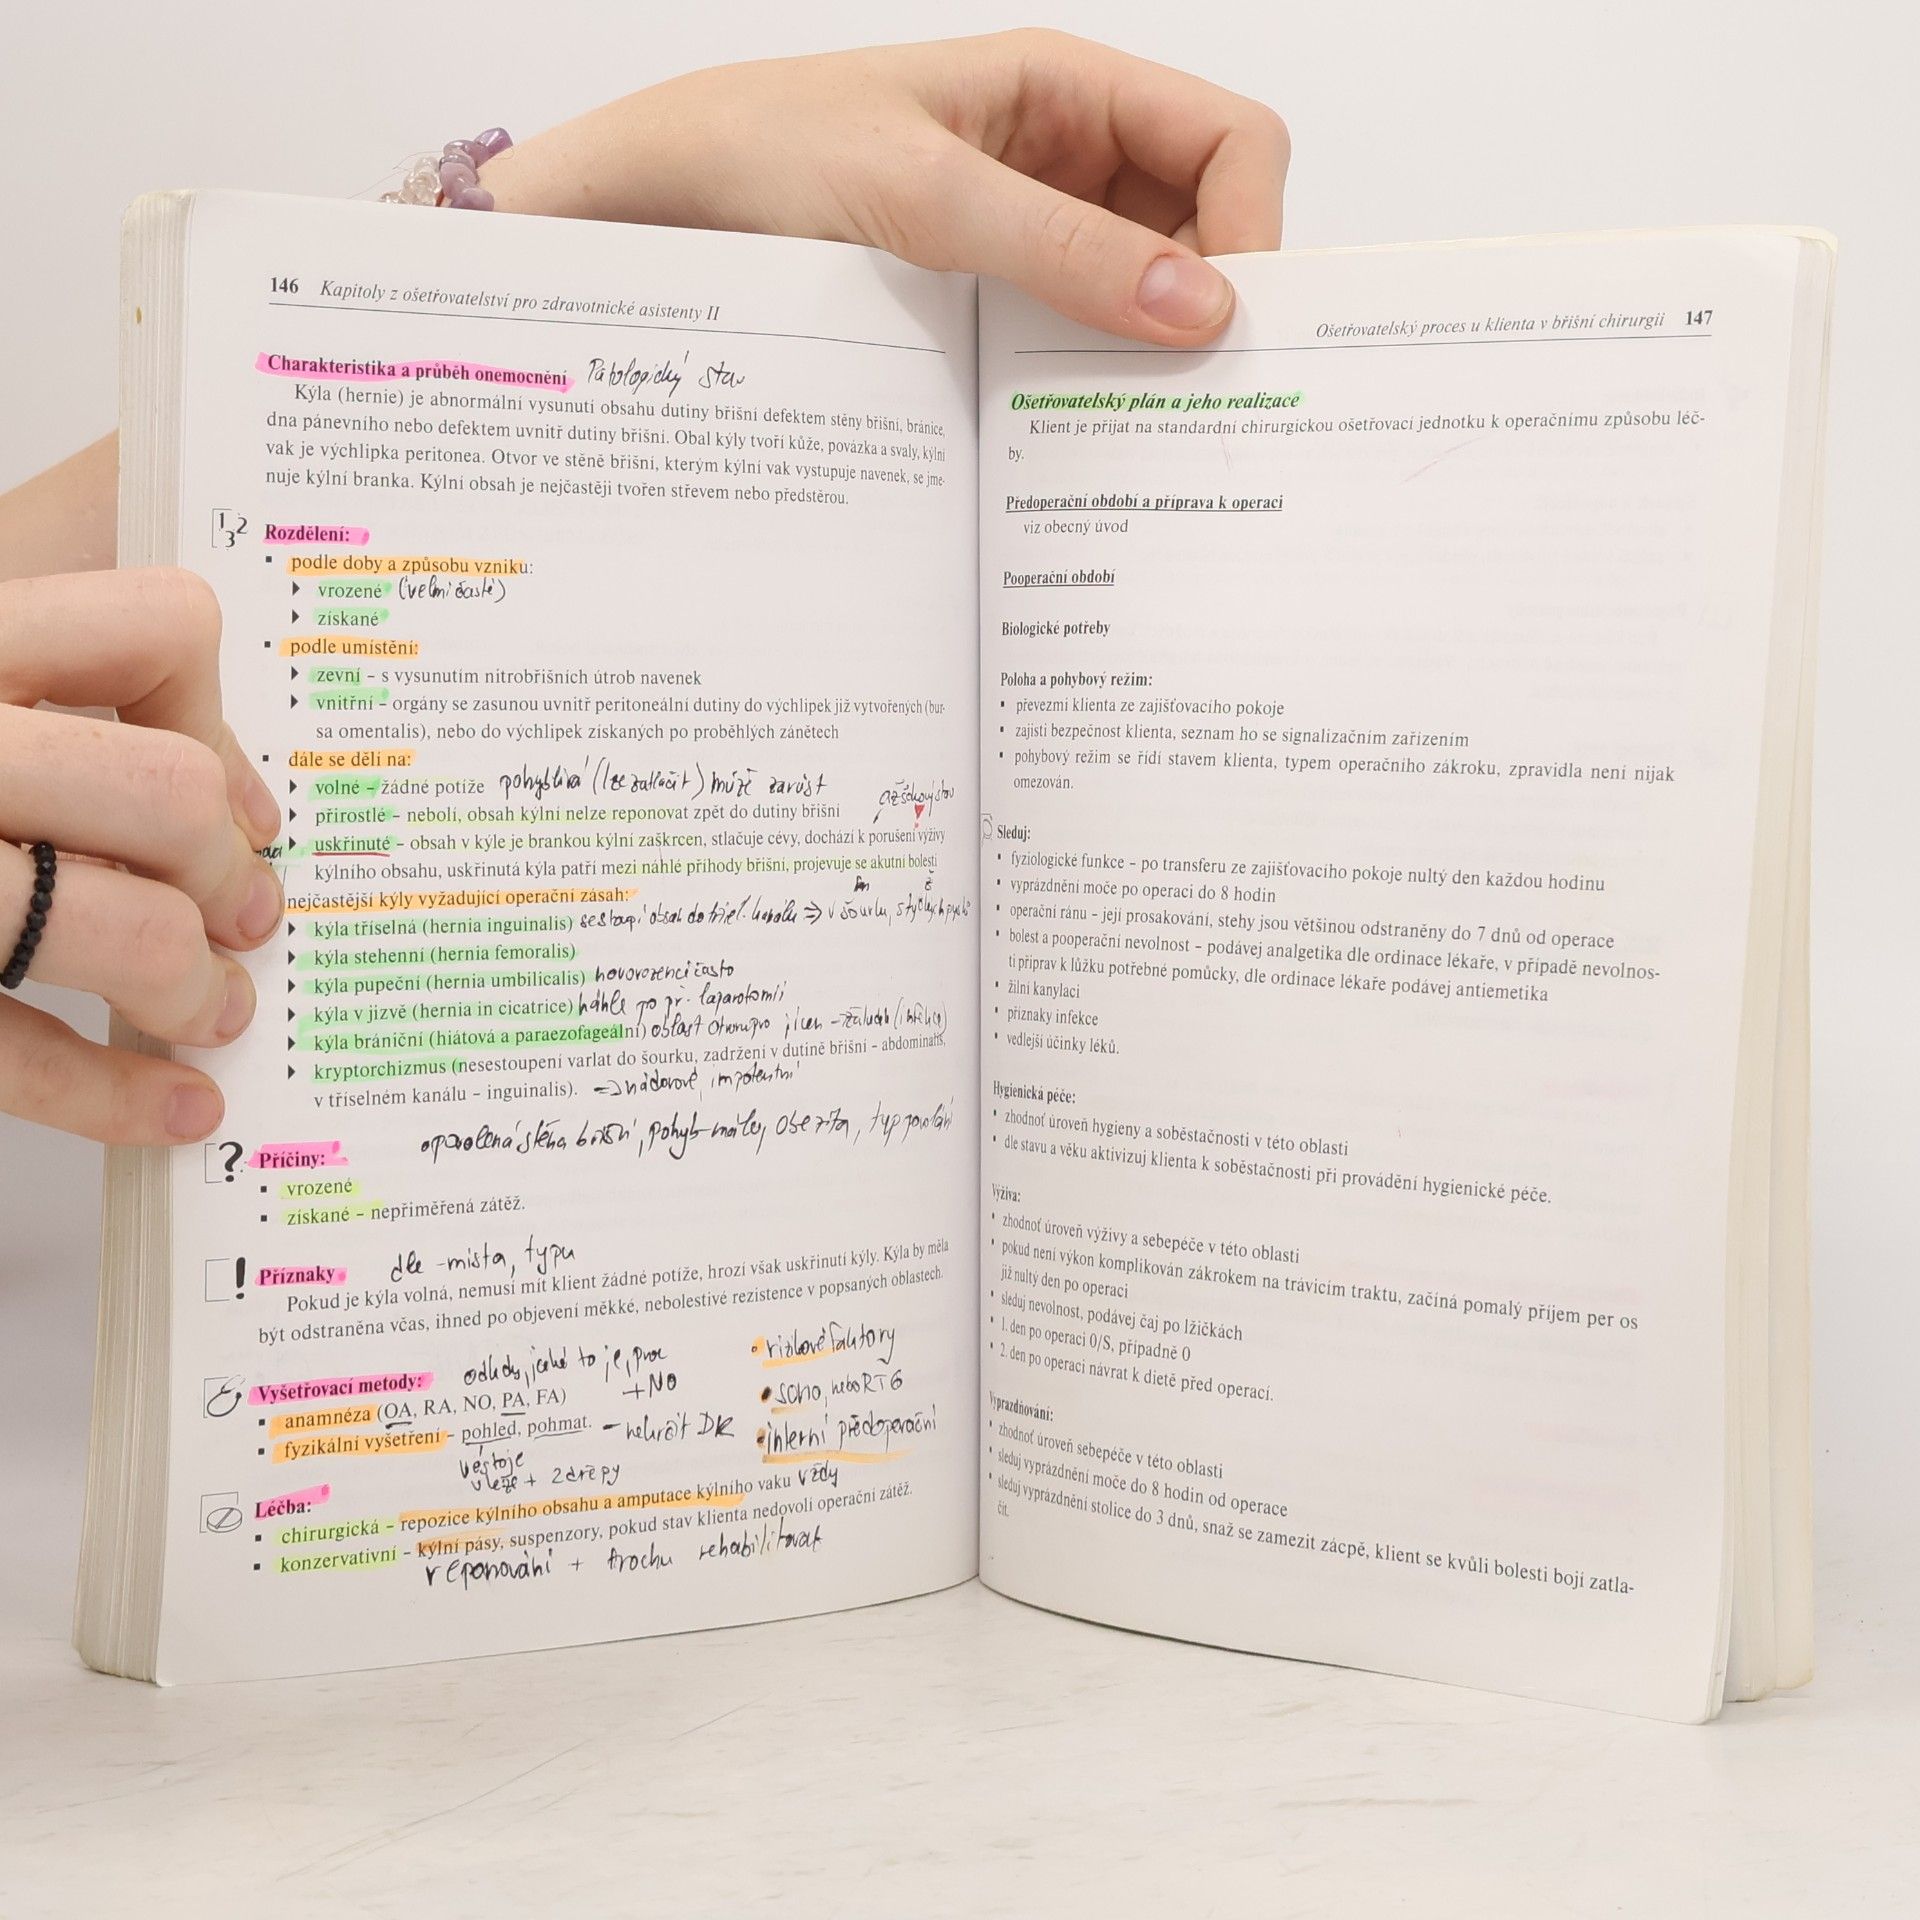 146 Kapitoly z ošetřovatelství pro zdravotnické asistenty II
Charakteristika a průběh onemocnění Patologický stav
Kýla (hernie) je abnormální vysunutí obsahu dutiny břišní defektem stěny břišní, bránice,
dna pánevního nebo defektem uvnitř dutiny břišní. Obal kýly tvoří kůže, povázka a svaly, kýlní
vak je výchlipka peritonea. Otvor ve stěně břišní, kterým kýlní vak vystupuje navenek, se jme-
nuje kýlní branka. Kýlní obsah je nejčastěji tvořen střevem nebo předstěrou.
1 2 3 Rozdělení:
▪ podle doby a způsobu vzniku:
vrozené (velmi časté)
získané
▪ podle umístění:
zevní – s vysunutím nitrobřišních útrob navenek
vnitřní – orgány se zasunou uvnitř peritoneální dutiny do výchlipek již vytvořených (bur-
sa omentalis), nebo do výchlipek získaných po proběhlých zánětech
▪ dále se dělí na:
volné – žádné potíže pohyblivá (lze zatlačit) může zarůst
až šokový stav
přirostlé – nebolí, obsah kýlní nelze reponovat zpět do dutiny břišní
uskřinuté – obsah v kýle je brankou kýlní zaškrcen, stlačuje cévy, dochází k porušení výživy
kýlního obsahu, uskřinutá kýla patří mezi náhlé příhody břišní, projevuje se akutní bolestí
nejčastější kýly vyžadující operační zásah:
kýla tříselná (hernia inguinalis) sestoupí obsah do třísel. kanálu => v šourku, stydkých pysků
kýla stehenní (hernia femoralis)
kýla pupeční (hernia umbilicalis) novorozenci často
kýla v jizvě (hernia in cicatrice) náhle po př. laparotomii
kýla brániční (hiátová a paraezofageální) oblast otvoru pro jícen – žaludek
kryptorchizmus (nesestoupení varlat do šourku, zadržení v dutině břišní – abdominalis,
v tříselném kanálu – inguinalis). => nádorové, impotentní
povolená stěna břišní, pohyb-málo, obezita, typ povolání
? Příčiny:
▪ vrozené
▪ získané – nepřiměřená zátěž.
dle – místa, typu
! Příznaky
Pokud je kýla volná, nemusí mít klient žádné potíže, hrozí však uskřinutí kýly. Kýla by měla
být odstraněna včas, ihned po objevení měkké, nebolestivé rezistence v popsaných oblastech.
odkdy, jaké to je, proc • rizikové faktory
Vyšetřovací metody: + NO • SONO, nebo RTG
▪ anamnéza (OA, RA, NO, PA, FA)
▪ fyzikální vyšetření – pohled, pohmat. – nekrčit DK • interní předoperační
vestoje
vleže + 2 dřepy
Léčba:
▪ chirurgická – repozice kýlního obsahu a amputace kýlního vaku vždy
▪ konzervativní – kýlní pásy, suspenzory, pokud stav klienta nedovolí operační zátěž.
reponování + trochu rehabilitovat
Ošetřovatelský proces u klienta v břišní chirurgii 147
Ošetřovatelský plán a jeho realizace
Klient je přijat na standardní chirurgickou ošetřovací jednotku k operačnímu způsobu léč-
by.
Předoperační období a příprava k operaci
viz obecný úvod
Pooperační období
Biologické potřeby
Poloha a pohybový režim:
▪ převezmi klienta ze zajišťovacího pokoje
▪ zajisti bezpečnost klienta, seznam ho se signalizačním zařízením
▪ pohybový režim se řídí stavem klienta, typem operačního zákroku, zpravidla není nijak
omezován.
Sleduj:
▪ fyziologické funkce – po transferu ze zajišťovacího pokoje nultý den každou hodinu
▪ vyprázdnění moče po operaci do 8 hodin
▪ operační ránu – její prosakování, stehy jsou většinou odstraněny do 7 dnů od operace
▪ bolest a pooperační nevolnost – podávej analgetika dle ordinace lékaře, v případě nevolnos-
ti připrav k lůžku potřebné pomůcky, dle ordinace lékaře podávej antiemetika
▪ žilní kanylaci
▪ příznaky infekce
▪ vedlejší účinky léků.
Hygienická péče:
▪ zhodnoť úroveň hygieny a soběstačnosti v této oblasti
▪ dle stavu a věku aktivizuj klienta k soběstačnosti při provádění hygienické péče.
Výživa:
▪ zhodnoť úroveň výživy a sebepéče v této oblasti
▪ pokud není výkon komplikován zákrokem na trávicím traktu, začíná pomalý příjem per os
již nultý den po operaci
▪ sleduj nevolnost, podávej čaj po lžičkách
▪ 1. den po operaci 0/S, případně 0
▪ 2. den po operaci návrat k dietě před operací.
Vyprazdňování:
▪ zhodnoť úroveň sebepéče v této oblasti
▪ sleduj vyprázdnění moče do 8 hodin od operace
▪ sleduj vyprázdnění stolice do 3 dnů, snaž se zamezit zácpě, klient se kvůli bolesti bojí zatla-
čit.